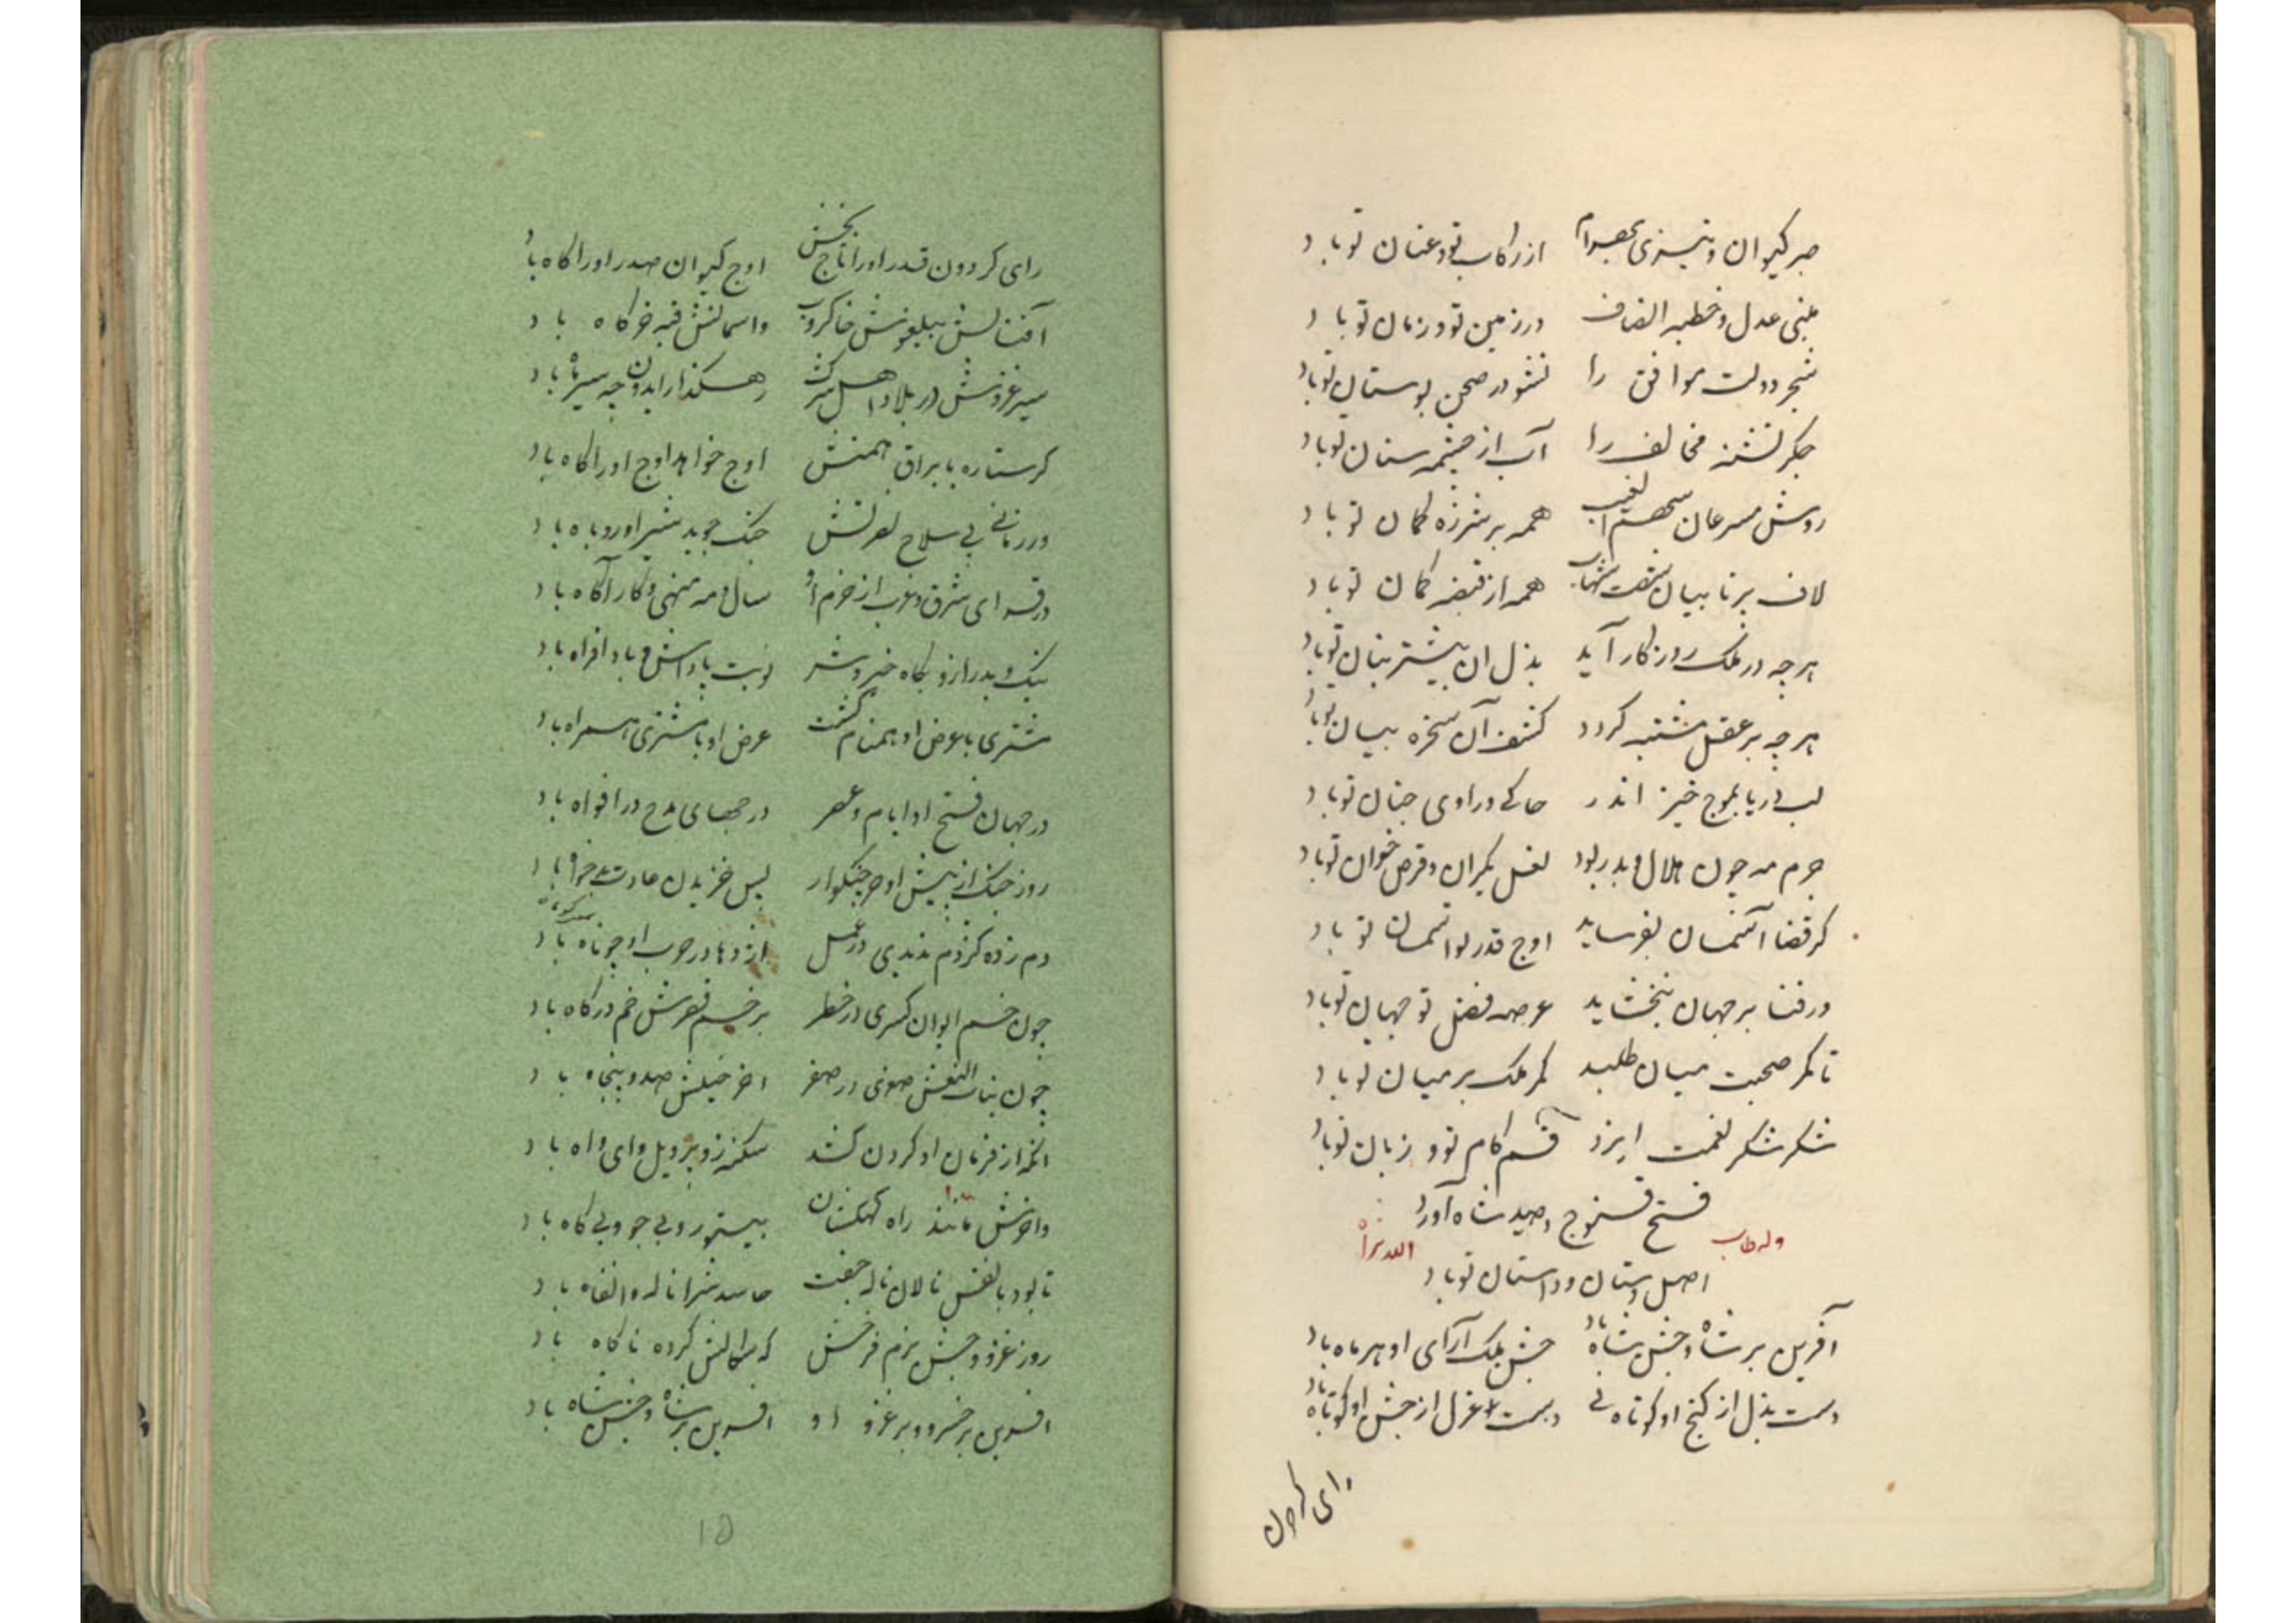 صبر کیوان و تیزی بهرام از رکاب تو و عنان تو باد
عدل و خطبه انصاف در زمین تو و زمان تو باد
شجر دولت موافق را نشو در صحن بوستان تو باد
جگر تشنه مخالف را آب از چشمه سنان تو باد
روش مسرعان سهم الغیب همه بر شرزه کمان تو باد
لاف برنا بیان شست شهاب همه از قبضه کمان تو باد
هر چه در ملک روزگار آید بذل ان بیشتر بنان تو باد
هر چه بر عقل مشتبه گردد کشف آن سخره بیان تو باد
لب دریا بموج خیز اندر حاکی و راوی جنان تو باد
جرم مه چون هلال و بدر بود لعل یکران و قرص خوان تو باد
گر قضا آسمان بفرساید اوج قدر تو اسمان تو باد
ور فنا بر جهان نبخشاید عرصه فضل تو جهان تو باد
تا کمر صحبت میان طلبد کمر ملک بر میان تو باد
شکر شکر نعمت ایزد قسم کام تو و زبان تو باد
فتح قنوج و صید شاه آورا
وله طاب الله ثراه
اصل دستان و داستان تو باد
آفرین بر شاه و جشن شاه باد جشن ملک آرای او هر ماه باد
دست بذل از گنج او کوتاه نی دست عزل از جشن او کوتاه باد
رای گردون
رای گردون قدر او را تاج بخش اوج کیوان صدر او را گاه باد
آفتابش خاکروب واسمانش قبه خرگاه باد
سیر غزوش در بلاد اهل شرک
گر ستاره با براق همتش اوج خواهد اوج او را گاه باد
ور زمانی بی سلاح نصرتش جنگ جوید شیر او روباه باد
در قه ای شرق و غرب از حزم او سال و مه منهی و کار آگاه باد
نیک و بد را زو بگاه خیر و شر نوبت پاداش و باد افراه باد
مشتری با عرض او همنام گشت عرض او با مشتری همراه باد
در جهان فتح او ایام و عصر در جهای مدح در افواه باد
روز جنگ از پیش او خرچنگوار پس خزیدن عادت بدخواه باد
دم زده کژدم در عمل اژدها در حرب او چون باد
چون خم ایوان کسری در خطر بر خم قصرش خم درگاه باد
چون بنات النعش صغری در صغر اخر خیلش صد و پنجاه باد
انکه از فرمان او گردن کشد سکنه زو بر ویل و وای و واه باد
واخرش مانند راه کهکشان بی ستور و بی جو و بی کاه باد
تا بود با نفس نالان ناله جفت حاسدش را ناله وا نفاه باد
روز غزو و جشن بزم فرخش که سگالش کرده ناگاه باد
افرین بر خسرو و بر غزو او افرین بر شاه و جشن شاه باد
۱۵